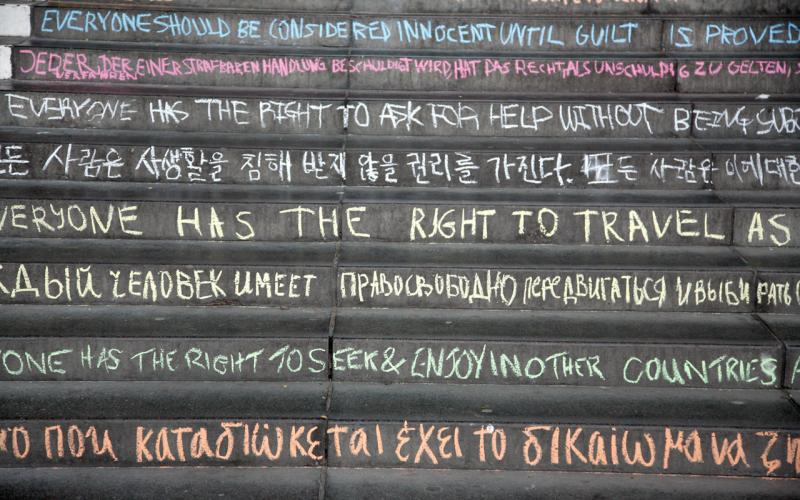 EVERYONE SHOULD BE CONSIDERED INNOCENT UNTIL GUILT IS PROVED
JEDER, DER EINER STRAFBAREN HANDLUNG BESCHULDIGT WIRD HAT DAS RECHT, ALS UNSCHULDIG ZU GELTEN,
VERFAHREN
EVERYONE HAS THE RIGHT TO ASK FOR HELP WITHOUT BEING
사람은 사생활을 침해 받지 않을 권리를 가진다. 모든 사람은 이에 대한
VERYONE HAS THE RIGHT TO TRAVEL AS
ЖДЫЙ ЧЕЛОВЕК ИМЕЕТ ПРАВО СВОБОДНО ПЕРЕДВИГАТЬСЯ И ВЫБИРАТЬ
ONE HAS THE RIGHT TO SEEK & ENJOY IN OTHER COUNTRIES
που καταδιώκεται έχει το δικαίωμα να